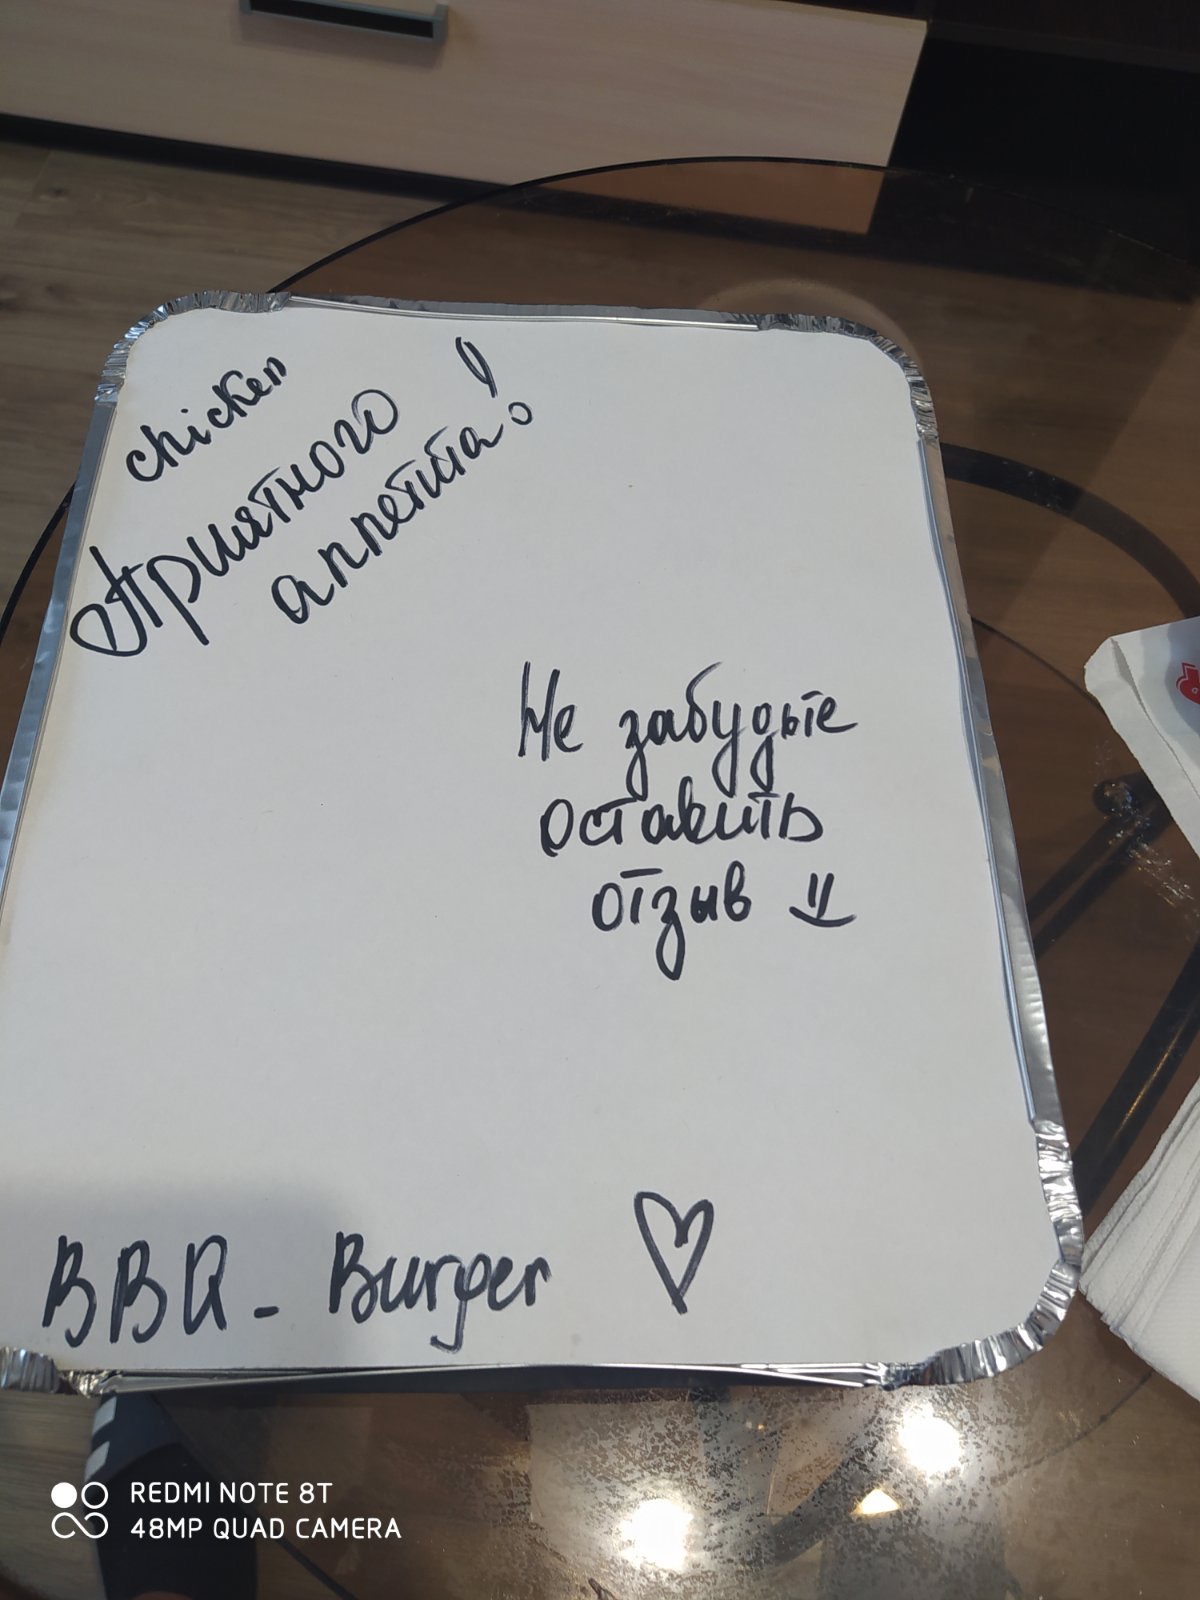 chicken
Приятного
аппетита!
Не забудьте
оставить
отзыв
BBQ - Burger
REDMI NOTE 8T
48MP QUAD CAMERA